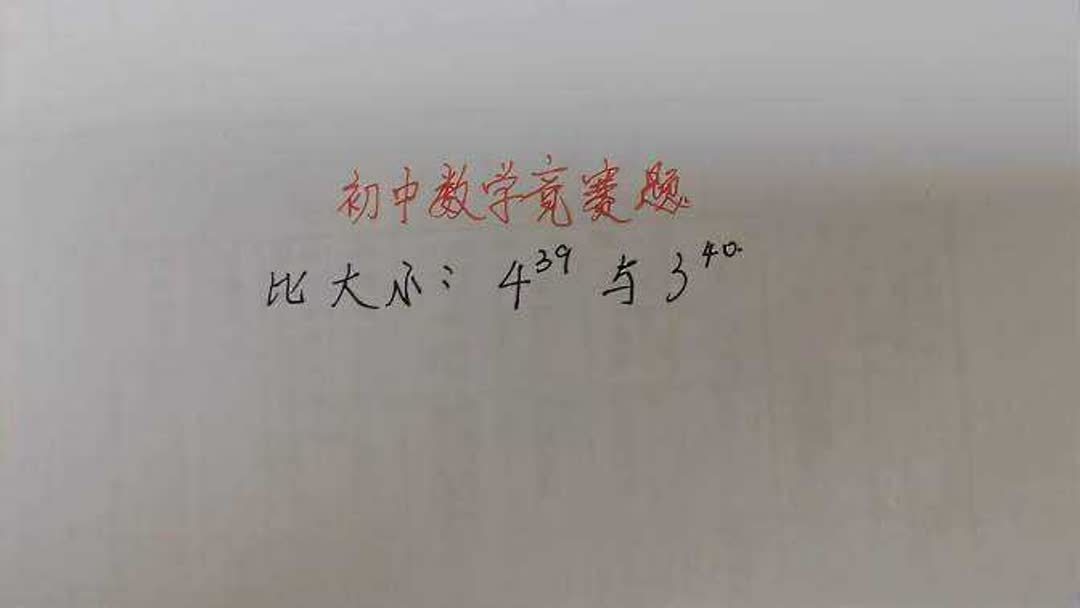 初中数学竞赛题
比大小：4³⁹与3⁴⁰